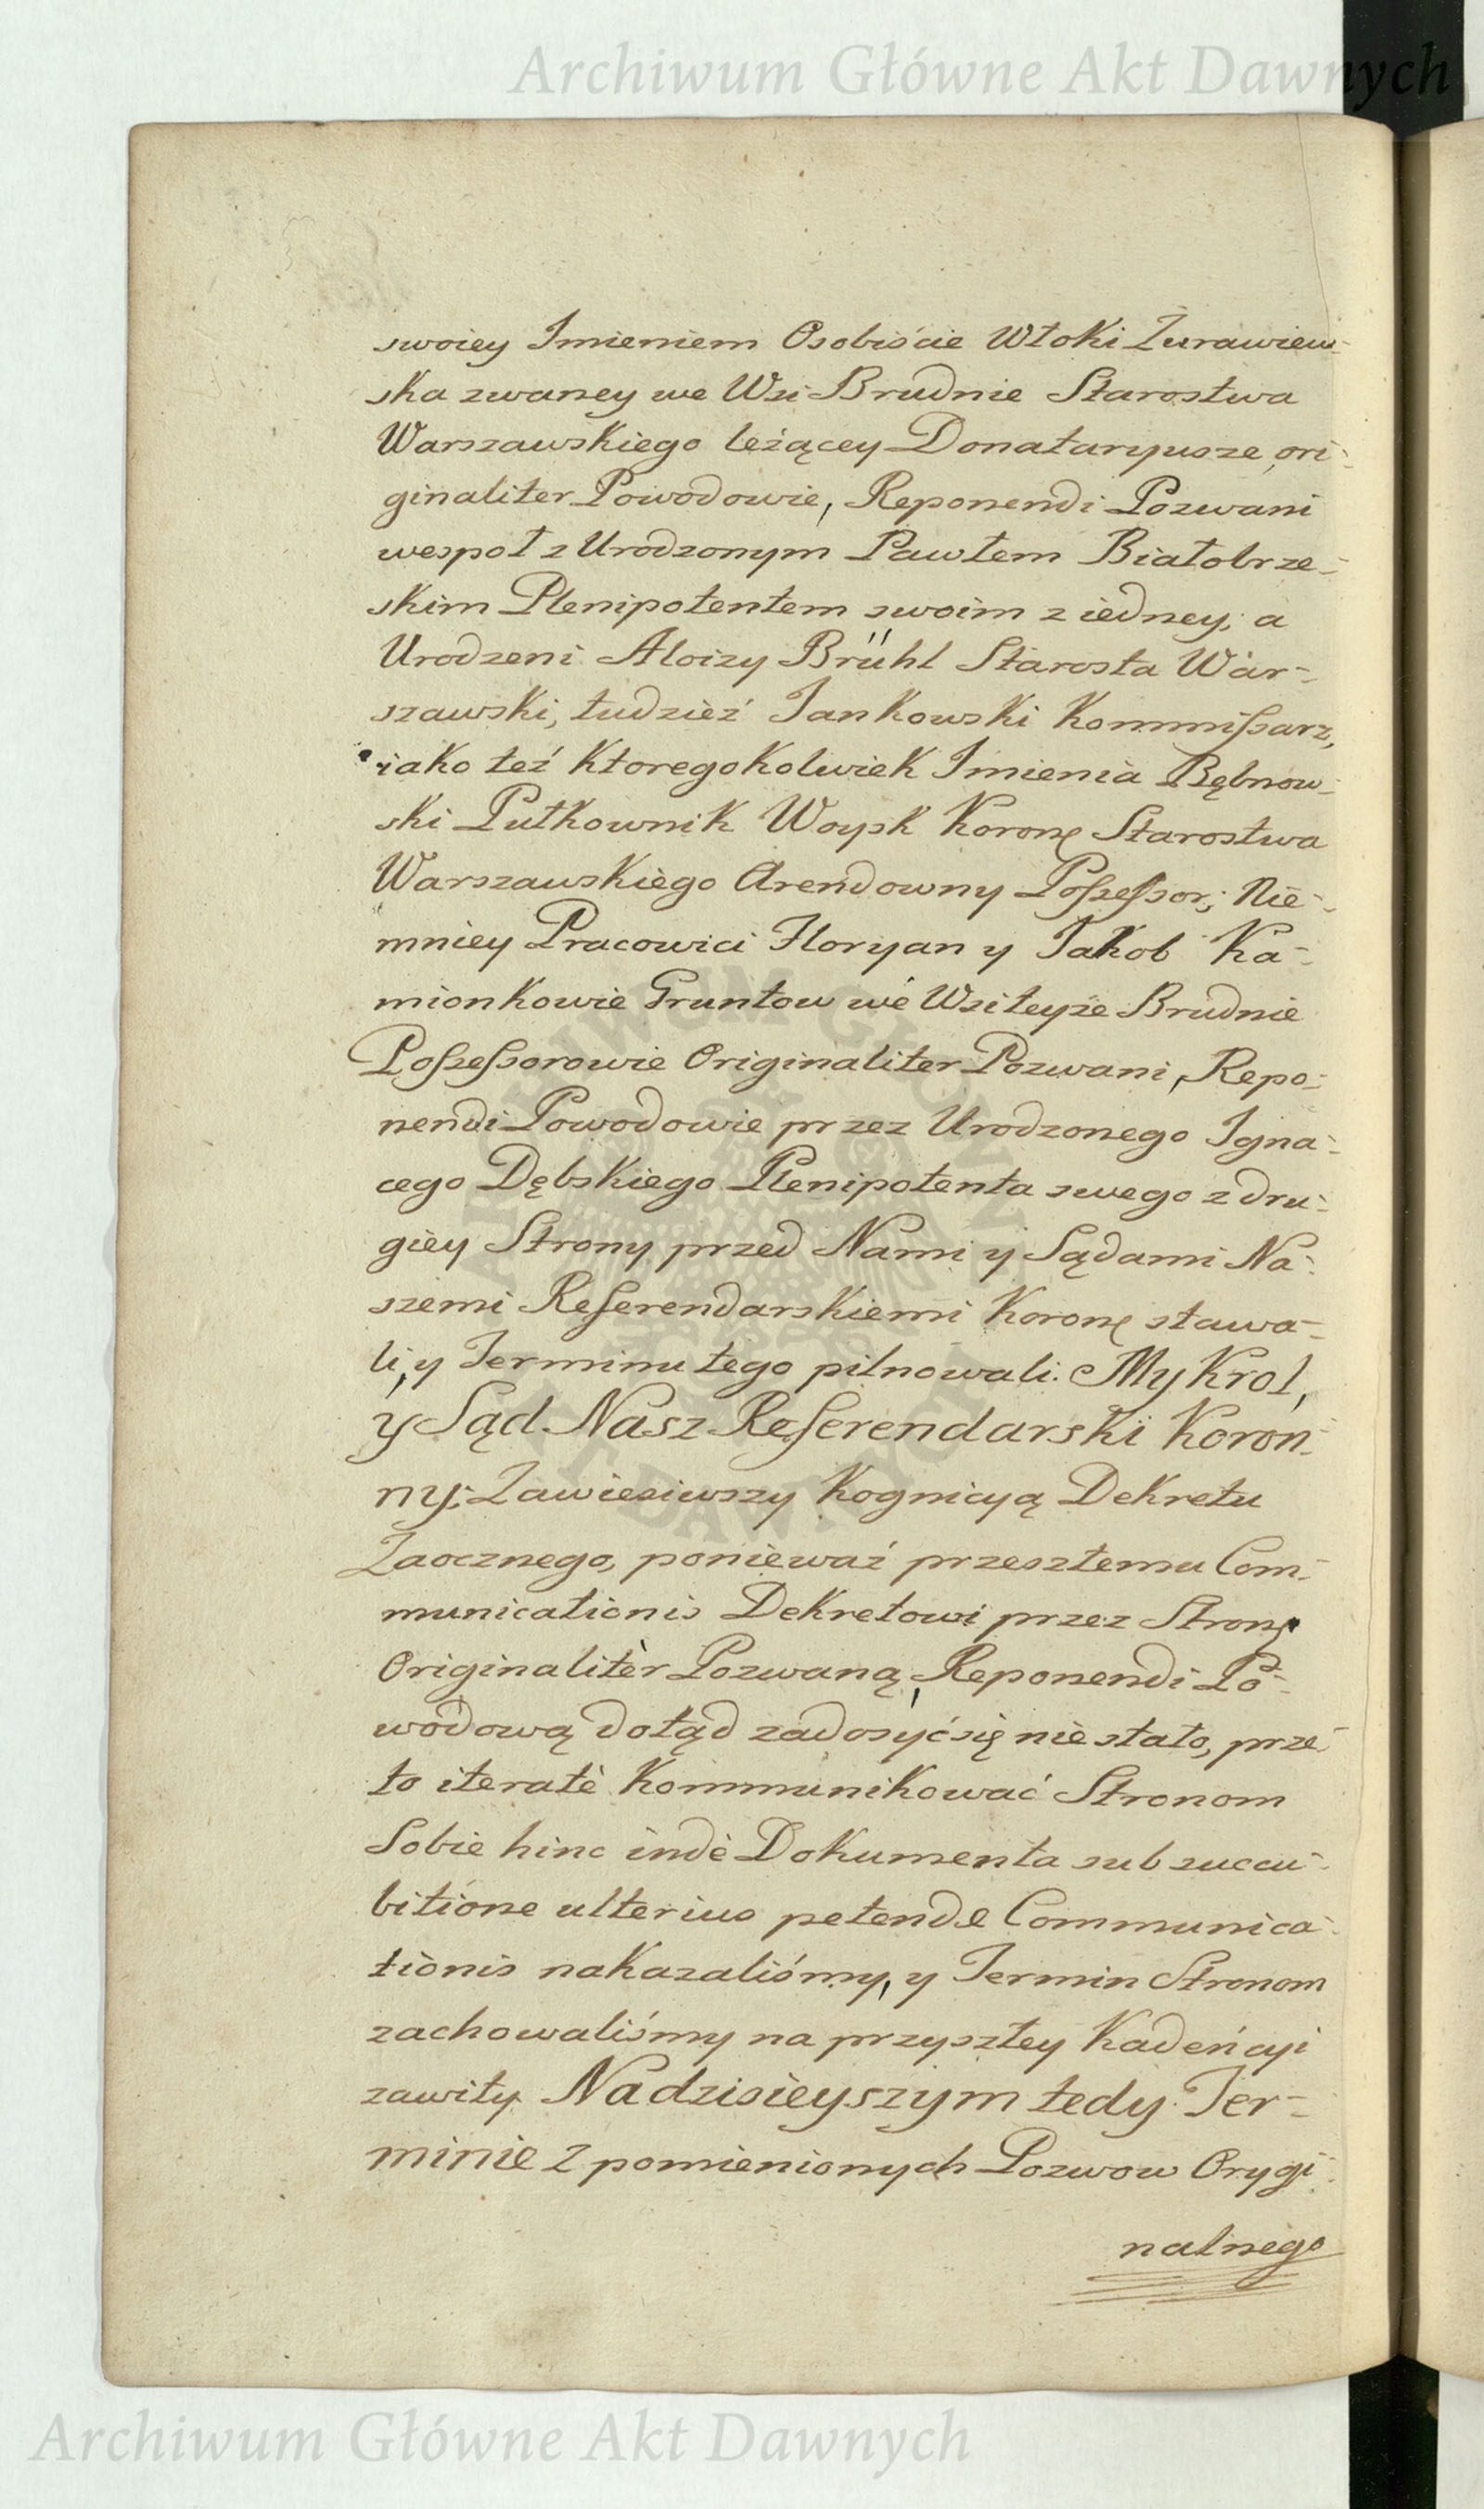 Archiwum Główne Akt Dawnych
swoiey Imieniem Osobiście Włoki Żurawiew-
ska zwaney we Wsi Brudnie Starostwa
Warszawskiego leżącey Donataryusze ori-
ginaliter Powodowie, Reponendi Pozwani
wespoł z Urodzonym Pawłem Białobrze-
skim Plenipotentem swoim z iedney; a
Urodzeni Aloizy Brühl Starosta War-
szawski, tudzież Jankowski Kommissarz,
iako też ktoregokolwiek Imienia Bębnow-
ski Pułkownik Woysk Koronę Starostwa
Warszawskiego Arendowny Possessor; Nie-
mniey Pracowici Floryan y Jakob Ka-
mionkowie Gruntow we Wsi teyże Brudnie
Possessorowie Originaliter Pozwani, Repo-
nendi Powodowie przez Urodzonego Igna-
cego Dębskiego Plenipotenta swego z dru-
giey Strony przed Nami y Sądami Na-
szemi Referendarskiemi Koronę stawa-
li, y Terminu tego pilnowali. My Krol,
y Sąd Nasz Referendarski Koron-
ny; Zawiesiwszy Kognicyą Dekretu
Zaocznego, ponieważ przeszłemu Com-
municationis Dekretowi przez Stronę
Originalitèr Pozwaną, Reponendi Po-
wodową dotąd zadosyć się nie stało, prze-
to iteratè Kommunikować Stronom
Sobie hinc indè Dokumenta sub succu-
bitione ulterius petendæ Communica-
tionis nakazaliśmy, y Termin Stronom
zachowaliśmy na przyszłey Kadeńcyi
zawity. Na dzisieyszym tedy Ter-
minie z pomienionych Pozwow Orygi-
nalnego
Archiwum Główne Akt Dawnych